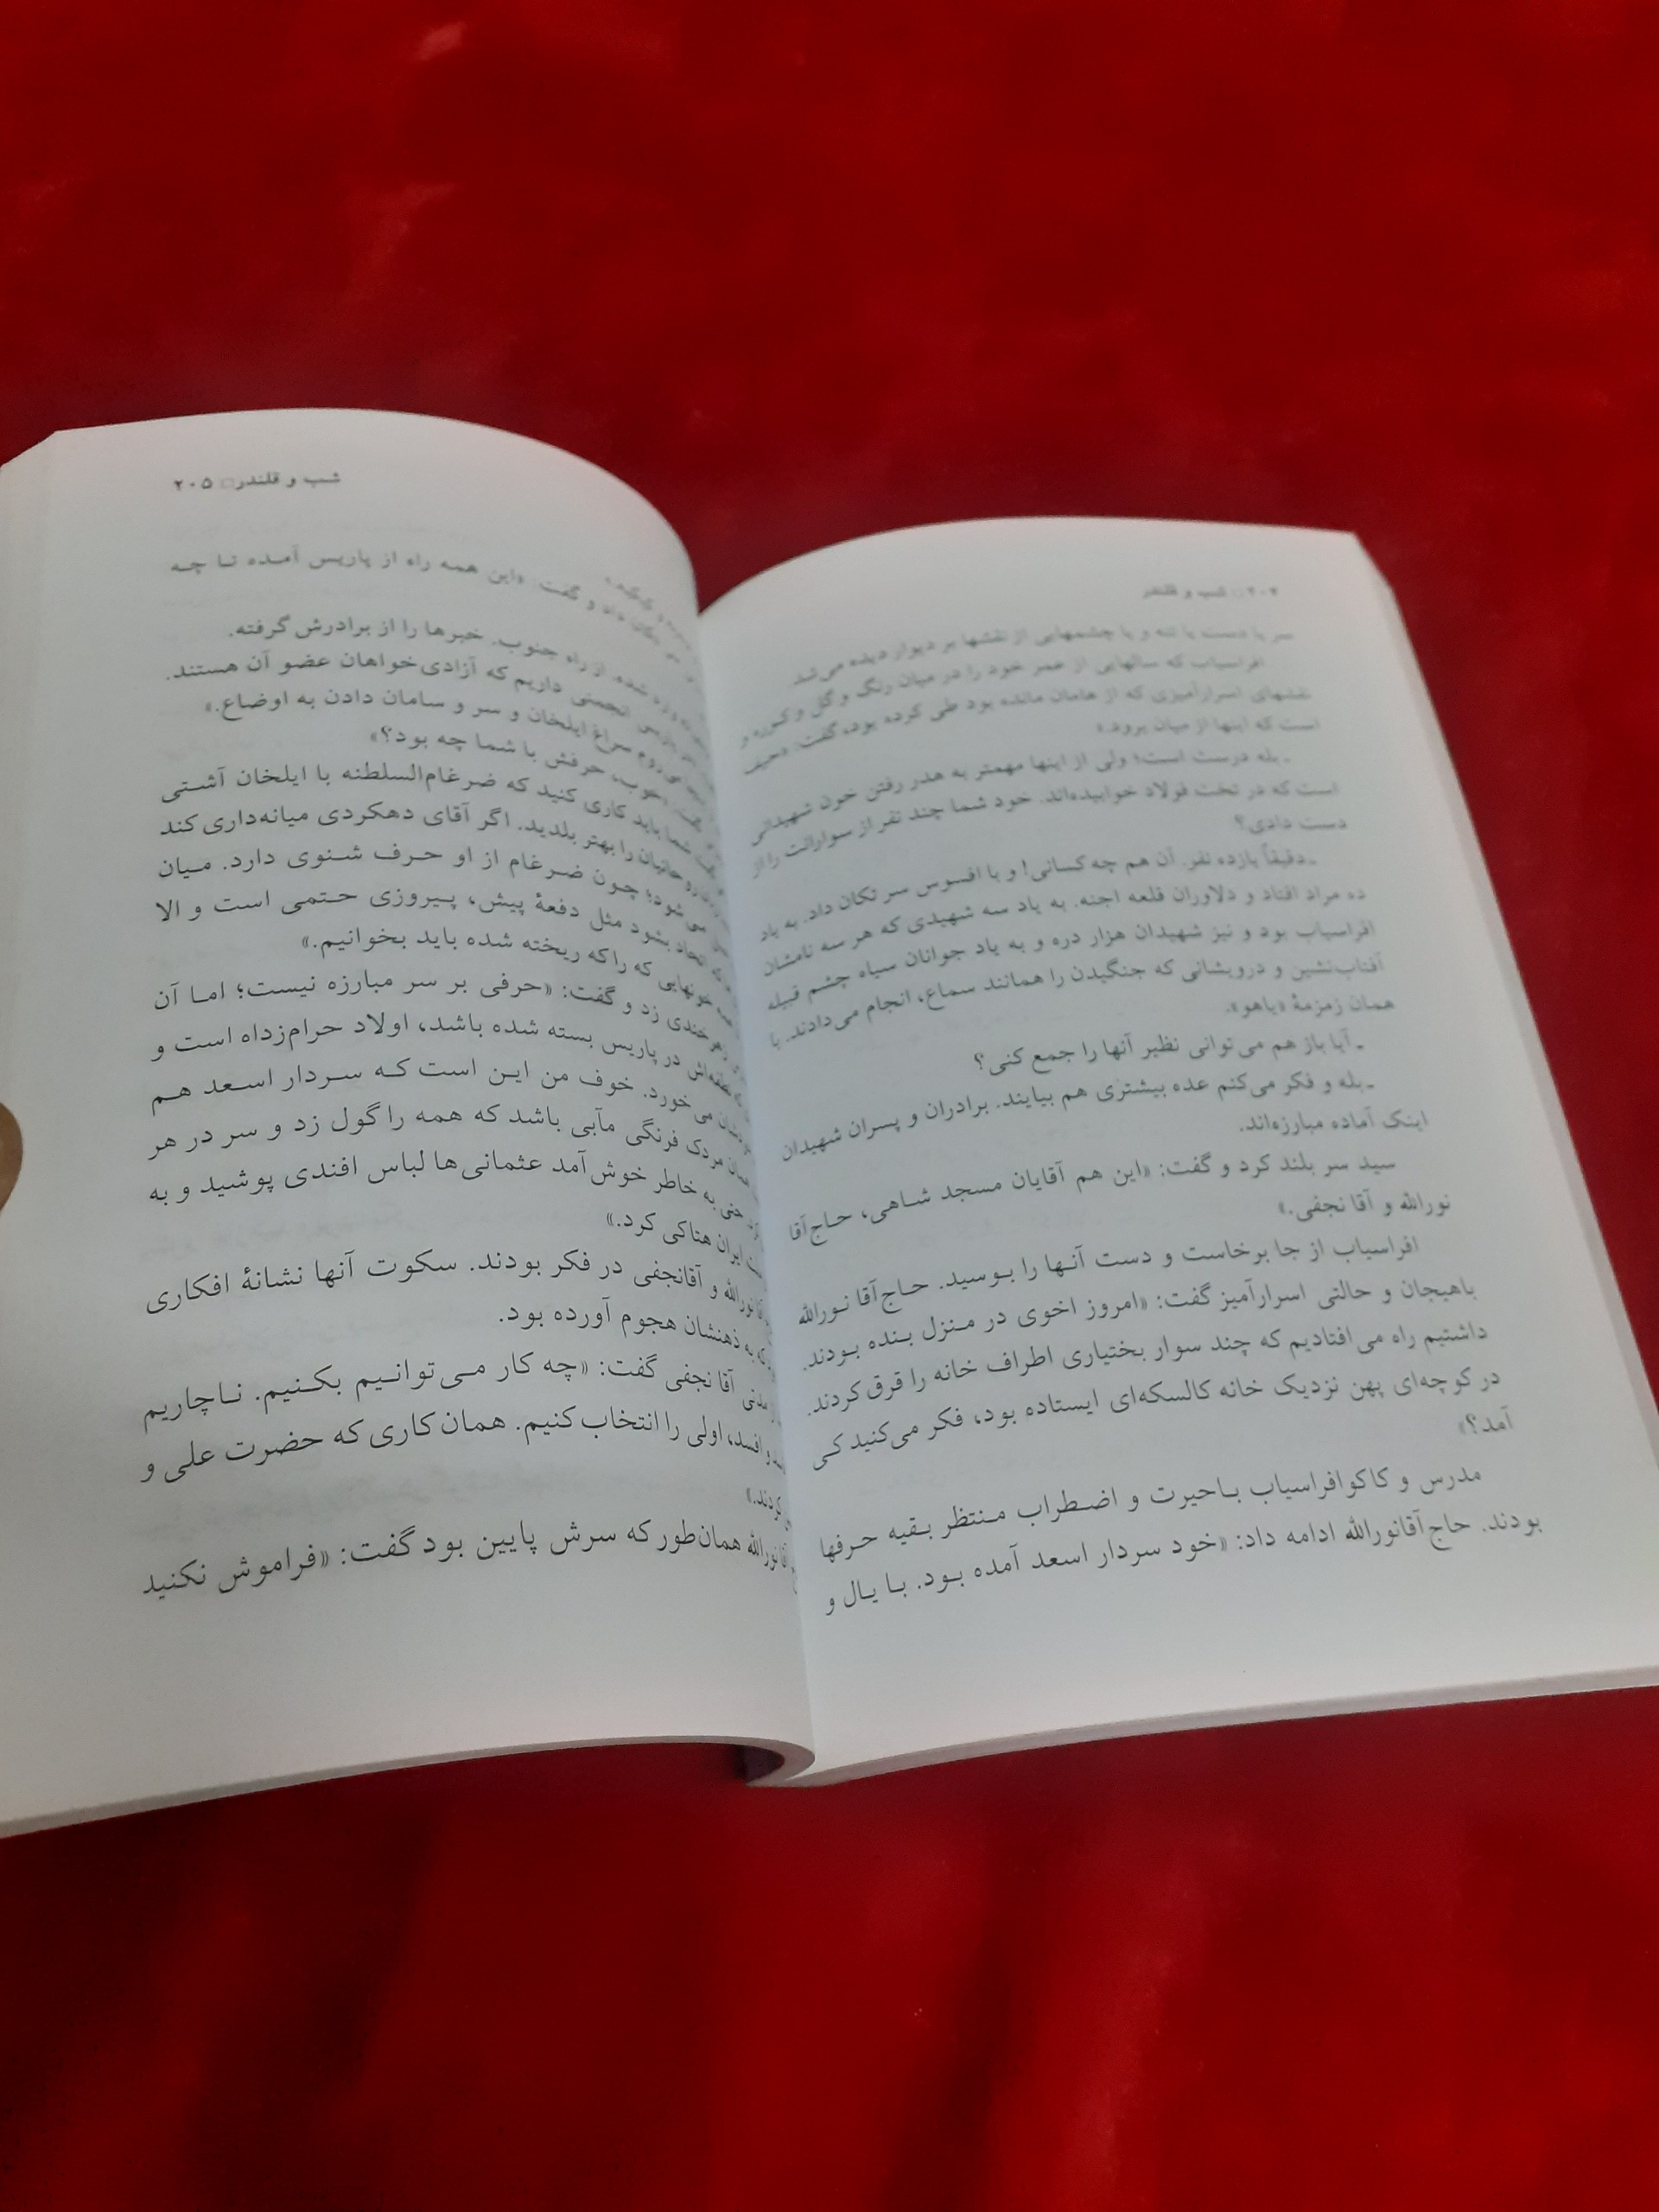 ۲۰۴ □ شب و قلندر
سر یا دست یا تنه و یا چشمهایی از نقشها بر دیوار دیده می‌شد.
افراسیاب که سالهایی از عمر خود را در میان رنگ و گل و کوره و
نقشهای اسرارآمیزی که از هامان مانده بود طی کرده بود، گفت: «حیف
است که اینها از میان برود.»
ـ بله درست است؛ ولی از اینها مهمتر به هدر رفتن خون شهیدانی
است که در تخت فولاد خوابیده‌اند. خود شما چند نفر از سوارانت را از
دست دادی؟
ـ دقیقاً یازده نفر. آن هم چه کسانی! و با افسوس سر تکان داد. به یاد
ده مراد افتاد و دلاوران قلعه اجنه. به یاد سه شهیدی که هر سه نامشان
افراسیاب بود و نیز شهیدان هزار دره و به یاد جوانان سیاه چشم قبیله
آفتاب‌نشین و درویشانی که جنگیدن را همانند سماع، انجام می‌دادند. با
همان زمزمهٔ «یاهو».
ـ آیا باز هم می‌توانی نظیر آنها را جمع کنی؟
ـ بله و فکر می‌کنم عده بیشتری هم بیایند. برادران و پسران شهیدان
اینک آماده مبارزه‌اند.
سید سر بلند کرد و گفت: «این هم آقایان مسجد شاهی، حاج‌آقا
نورالله و آقا نجفی.»
افراسیاب از جا برخاست و دست آنها را بوسید. حاج‌آقا نورالله
باهیجان و حالتی اسرارآمیز گفت: «امروز اخوی در منزل بنده بودند.
داشتیم راه می‌افتادیم که چند سوار بختیاری اطراف خانه را قرق کردند.
در کوچه‌ای پهن نزدیک خانه کالسکه‌ای ایستاده بود، فکر می‌کنید کی
آمد؟»
مدرس و کاکوافراسیاب باحیرت و اضطراب منتظر بقیه حرفها
بودند. حاج‌آقانورالله ادامه داد: «خود سردار اسعد آمده بود. با یال و
شب و قلندر □ ۲۰۵
تکان داد و گفت: «این همه راه از پاریس آمده تا چه
شده. از راه جنوب. خبرها را از برادرش گرفته.
پاریس انجمنی داریم که آزادی‌خواهان عضو آن هستند.
می‌روم سراغ ایلخان و سر و سامان دادن به اوضاع.»
گفت: «خوب، حرفش با شما چه بود؟»
شما باید کاری کنید که ضرغام‌السلطنه با ایلخان آشتی
خانیان را بهتر بلدید. اگر آقای دهکردی میانه‌داری کند
می‌شود؛ چون ضرغام از او حرف شنوی دارد. میان
اتحاد بشود مثل دفعهٔ پیش، پیروزی حتمی است و الا
خونهایی که را که ریخته شده باید بخوانیم.»
زهرخندی زد و گفت: «حرفی بر سر مبارزه نیست؛ اما آن
نطفه‌اش در پاریس بسته شده باشد، اولاد حرام‌زداه است و
می‌خورد. خوف من این است که سردار اسعد هم
همان مردک فرنگی مآبی باشد که همه را گول زد و سر در هر
حتی به خاطر خوش‌آمد عثمانی‌ها لباس افندی پوشید و به
ایران هتاکی کرد.»
نورالله و آقانجفی در فکر بودند. سکوت آنها نشانهٔ افکاری
که به ذهنشان هجوم آورده بود.
مدتی آقا نجفی گفت: «چه کار می‌توانیم بکنیم. ناچاریم
و افسد، اولی را انتخاب کنیم. همان کاری که حضرت علی و
کردند.»
نورالله همان‌طور که سرش پایین بود گفت: «فراموش نکنید